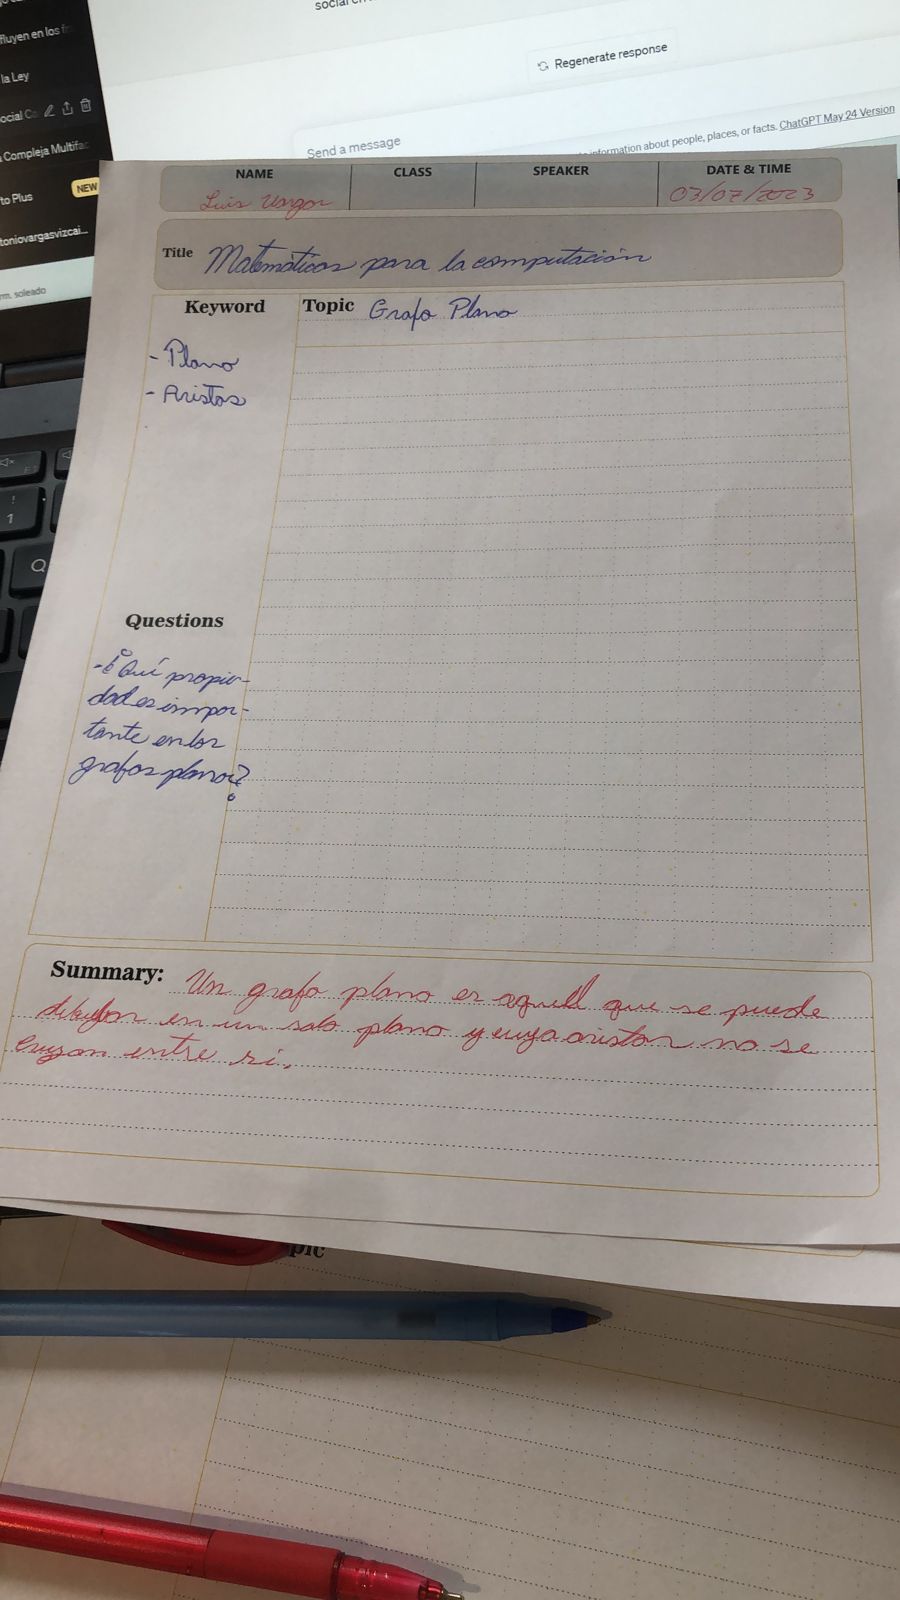 social en
fluyen en los
la Ley
ocial Co
Compleja Multifac
to Plus NEW
toniovargasvizcai...
rm. soleado
Regenerate response
Send a message
information about people, places, or facts. ChatGPT May 24 Version
NAME CLASS SPEAKER DATE & TIME
Luis Vargas 03/07/2023
Title Matemáticas para la computación
Keyword
- Plano
- Aristas
Topic Grafo Plano
! 1
Q
Questions
- ¿Qué propie-
dad es impor-
tante en los
grafos planos?
Summary: Un grafo plano es aquell que se puede
dibujar en un solo plano y cuya aristas no se
cruzan entre si.
pic